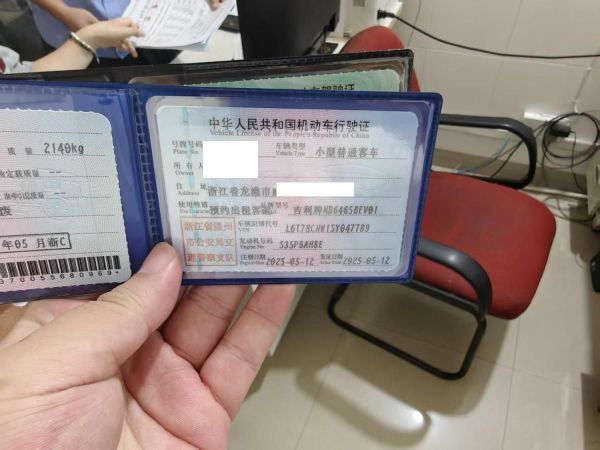 质 量 2140kg
定载质量 --
准牵引总质量 --
05 月浙C
驾驶证
中华人民共和国机动车行驶证
Vehicle License of the People's Republic of China
号牌号码
Plate No.
车辆类型
Vehicle Type
小型普通客车
所有人
Owner
住 址
Address
浙江省龙港市
使用性质
Use Character
预约出租客运
吉利牌
浙江省温州
市公安局交
通警察支队
车辆识别代号
VIN
L6T78CNW1SY047789
发动机号码
Engine No.
S35PBAH8E
注册日期
Register Date
2025-05-12
发证日期
Issue Date
2025-05-12